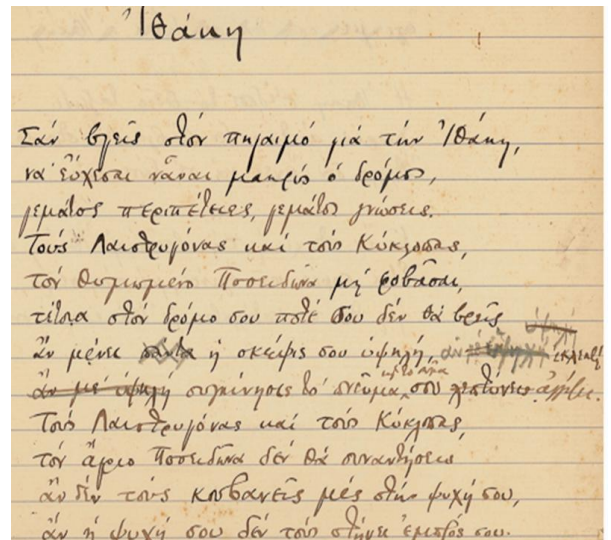 Ἰθάκη
Σάν βγεῖς στόν πηγαιμό γιά τήν Ἰθάκη,
νά εὔχεσαι νἆναι μακρύς ὁ δρόμος,
γεμάτος περιπέτειες, γεμάτος γνώσεις.
Τούς Λαιστρυγόνας καί τούς Κύκλωπας,
τόν θυμωμένο Ποσειδῶνα μή φοβᾶσαι,
τέτοια στόν δρόμο σου ποτέ σου δέν θά βρεῖς
ἄν μένει πάντα ἡ σκέψις σου ὑψηλή, ἄν ἐκλεκτή
ἄν μέ ὑψηλή συγκίνησις τό πνεῦμα καί τό σῶμα σου ἀγγίζει.
Τούς Λαιστρυγόνας καί τούς Κύκλωπας,
τόν ἄγριο Ποσειδῶνα δέν θά συναντήσεις
ἄν δέν τούς κουβανεῖς μές στήν ψυχή σου,
ἄν ἡ ψυχή σου δέν τούς στήνει ἐμπρός σου.